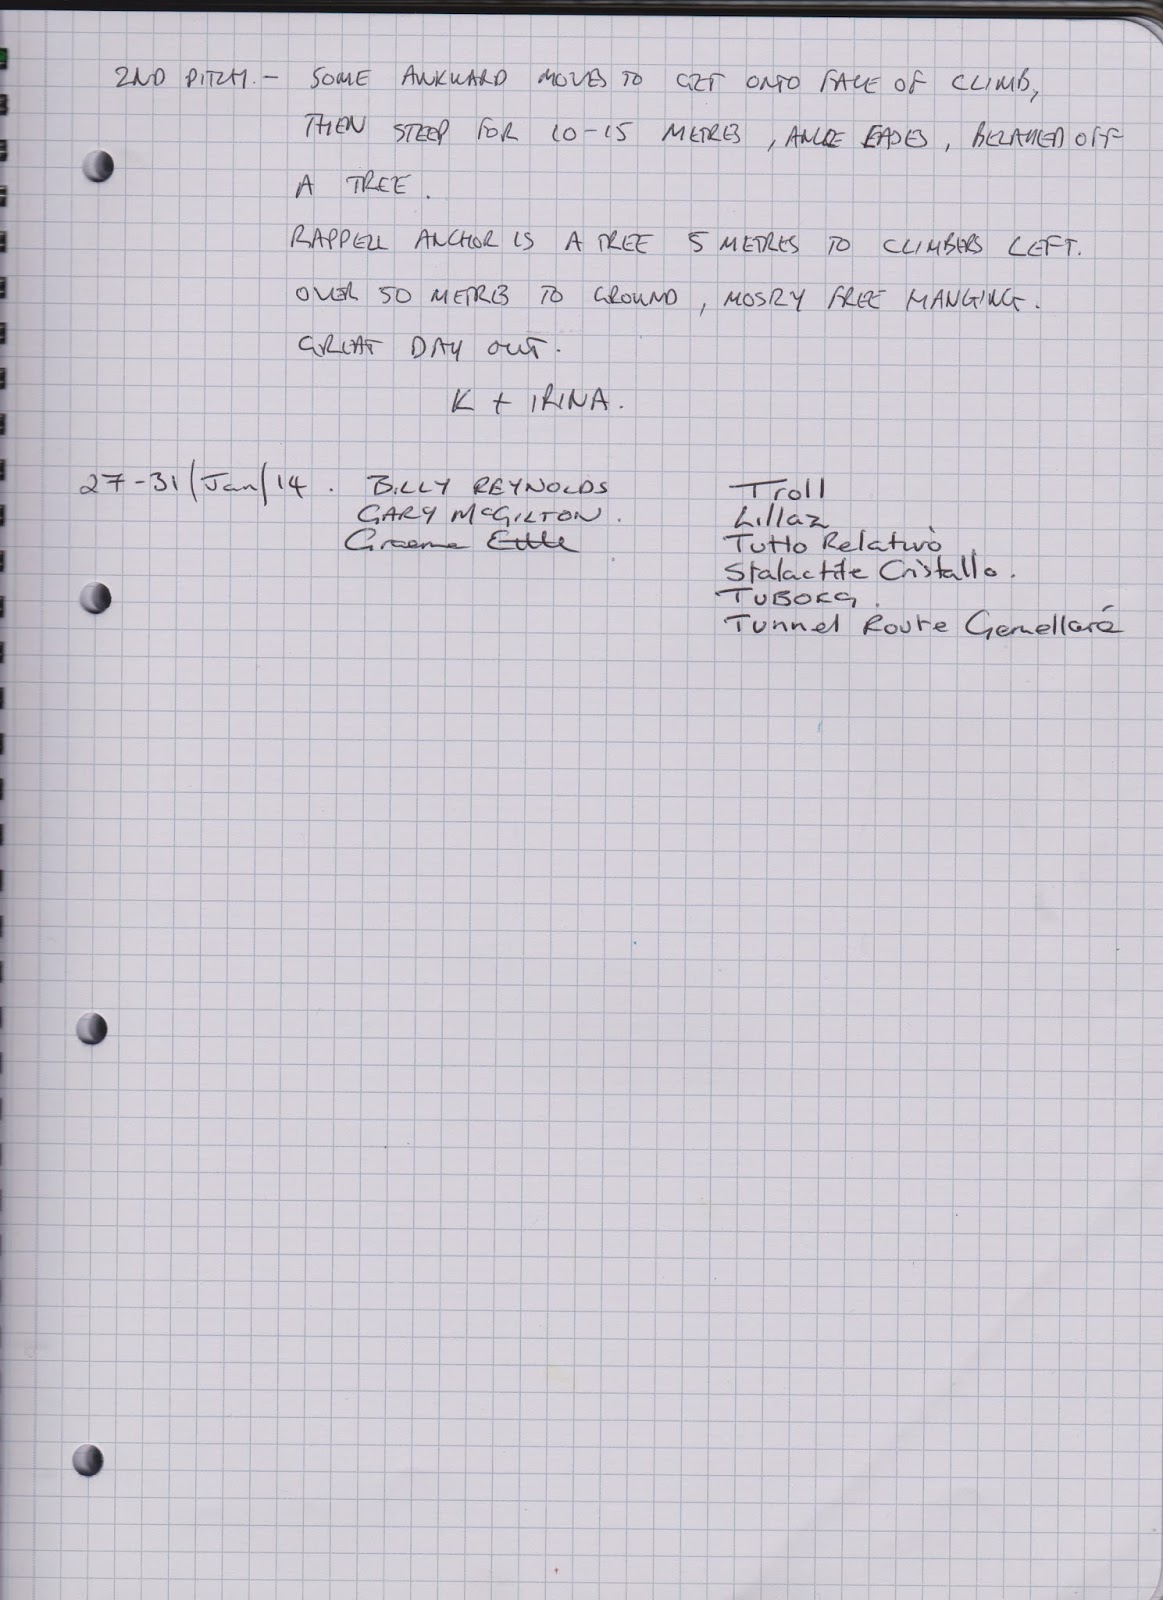 2ND PITCH. - SOME AWKWARD MOVES TO GET ONTO FACE OF CLIMB,
THEN STEEP FOR 10-15 METRES, ANGLE EASES, BELAYED OFF
A TREE.
RAPPELL ANCHOR IS A TREE 5 METRES TO CLIMBERS LEFT.
OVER 50 METRES TO GROUND, MOSTLY FREE HANGING.
GREAT DAY OUT.
K + IRINA.
27-31/Jan/14. BILLY REYNOLDS Troll
GARY McGILTON. Lillaz
Graeme Tutto Relativo
Stalactite Cristallo.
TUBORG.
Tunnel Route Gemellaré